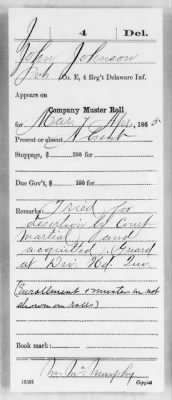 J | 4 | Del.
John Johnson
Co. E, 4 Reg't Delaware Inf.
Appears on
Company Muster Roll
for Mar & Apr, 1865
Present or absent Absent
Stoppage, $ 100 for
Due Gov't, $ 100 for
Remarks: Tried for
desertion by Court
Martial and
acquitted. Guard
at Div. Hd Qrs.
(Enrollment & muster in not
shown on rolls)
Book mark:
Murphy
Copyist